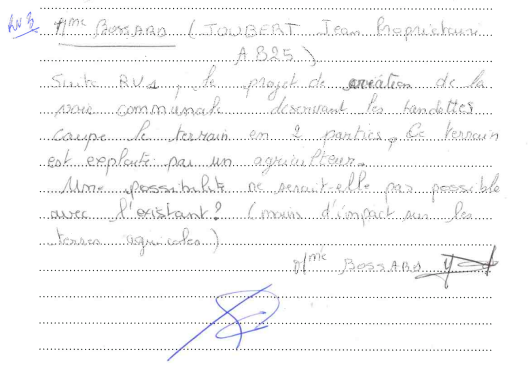 RV3 Mme BOSSARD (JOUBERT Jean Propriétaire
AB25)
Suite RV1, le projet de création de la
voie communale desservant les
coupe le terrain en 2 parties, Ce terrain
est exploité par un agriculteur.
Une possibilité ne serait-elle pas possible
avec l'existant? (moins d'impact sur les
terres agricoles.)
Mme BOSSARD